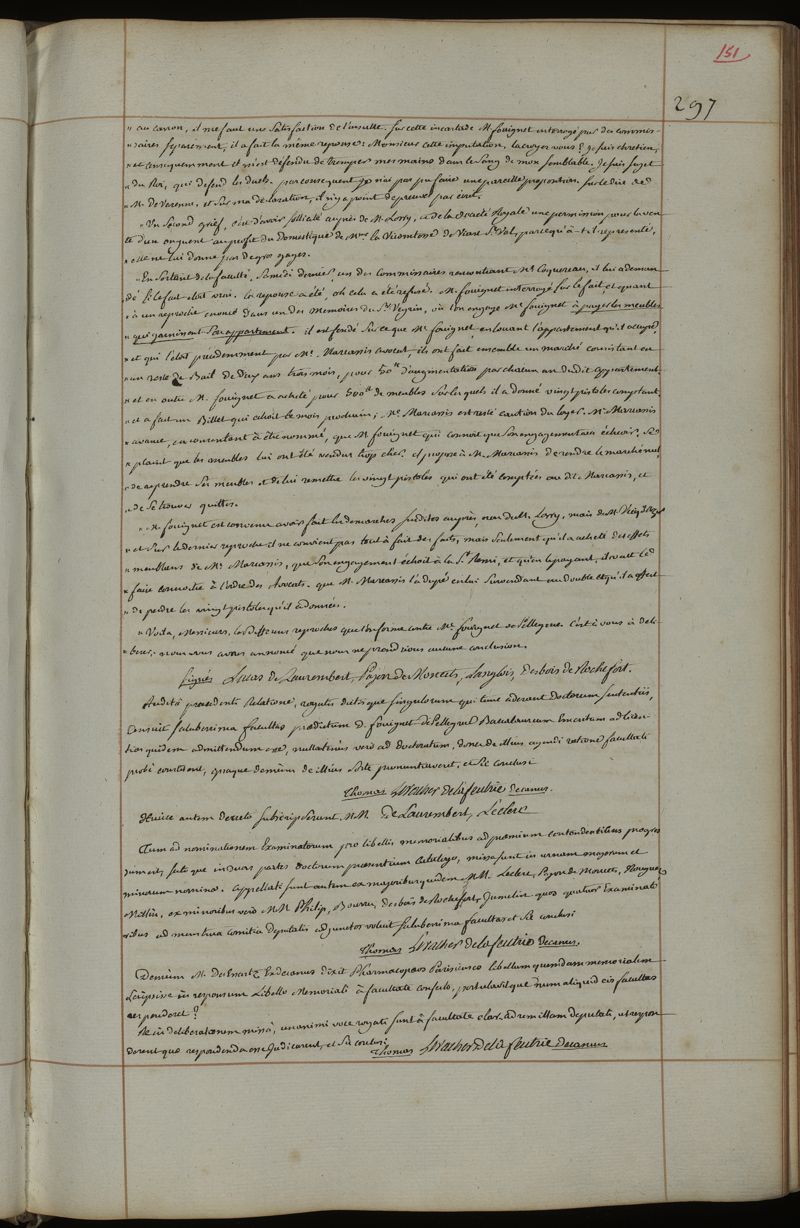 151
297
" au canon, il me faut une satisfaction de l'insulte. Sur cette incartade M. fouignet interrogé par des commis-
" saires separement, il a fait la même reponse: Monsieur cette imputation, la croyez vous? Je suis chretien,
" et consequemment il m'est défendu de tremper mes mains dans le sang de mon semblable. Je suis sujet
" du Roi, qui defend les duels. par consequent je n'ai pas pu faire une pareille proposition. Sur le dire de
" M. de Varenne, et sur ma declaration, il n'y a point de preuves par écrit.
" Un second grief, c'est d'avoir sollicité auprès de M. Lorry, et de la Societé Royale une permission pour la ven
te d'un onguent au profit du Domestique de Mme la Vicomtesse de Viarre St. Vol, parcequ'a-t-il representé,
" elle ne lui donne pas de gros gages.
" En sortant de la faculté, Samedi dernier, un des Commissaires rencontrant Mr Coquereau, et lui a deman
dé si le fait etoit vrai. la reponse a été, oh cela a été refusé. M. fouignet interrogé sur le fait, et quant
" à un reproche enoncé dans un des Memoires du Sr. Veyrin, où l'on engage Mr. fouignet à payer les meubles
" qui garnissent son appartement. il est fondé sur ce que Mr fouignet, en louant l'appartement qu'il occupe,
" et qui l'etoit precedemment par Mr. Marcassis avocat ils ont fait ensemble un marché consistant en
" un reste de Bail de deux ans trois mois, pour 50 # d'augmentation par chacun an dudit appartement
" et en outre M. fouignet a acheté pour 500 # de meubles sur lesquels il a donné vingt pistoles comptant,
" et a fait un Billet qui echoit le mois prochain; Mr. Marcassis est resté caution du loyer. Mr Marcassis
" avance, en consentant à être nommé, que M fouignet qui connoit que son engagement va échoir, se
" plaint que les meubles lui ont été vendus trop cher. et propose à M. Marcassis de rendre le marché nul,
" de reprendre ses meubles et de lui remettre les vingt pistoles qui ont été comptées au dit Marcassis, et
" de se trouver quittes.
" M. fouignet est convenu avoir fait les demarches susdites auprès non de M. Lorry, mais de M Vicq d'azyr
" et sur le dernier reproche il ne convient pas tout à fait des faits, mais seulement qu'il a acheté des effets
" meublans de Mr Marcassis, que son engagement échoit à la St. Remi, et qu'en le payant, il veut le
" faire connoitre à l'ordre des Avocats. que M. Marcassis l'a dupé en lui survendant au double et qu'il a offert
" de perdre les vingt pistoles qu'il a données.
" Voila, Messieurs, les differens reproches que l'on forme contre Mr. fouignet de Pellegrue. C'est à vous à deli-
berer; nous vous avons annoncé que nous ne prendrions aucune conclusion.
Signés Lucas de Laurembert, Pajon de Moncets, Langlois, Desbois de Rochefort.
Audità praecedenti Relatione, rogatis dictisque singulorum qui tunc aderant Doctorum sententiis,
Censuit Saluberrima facultas praedictum D. fouignet de Pellegrue Baccalaureum Emeritum ad licen-
tias quidem admittendum esse, nullatenus vero ad Doctoratum, donec de illius agendi ratione facultati
probè constiterit, ipsaque demùm de illius sorte pronuntiaverit. et sic conclusi
Thomas Le Vacher de la feutrie Decanus.
Huicce autem decreto subscripserunt. MM. De Laurembert, Leclerc
Tum ad nominationem Examinatorum pro libellis memorialibus ad praemium contendentibus progres
sum est, sicque in duas partes Doctorum praesentium catalogo, missa sunt in urnam majorum et
minorum nomina. Appellati sunt autem ex majoribus quidem MM. Leclerc, Pajon de Moncets,
Millin, ex minoribus vero MM Philip, Bourru, Desbois de Rochefort, Jumelin quos quatuor Examinato
ribus ad menstrua comitia Deputatis adjunctos voluit Saluberrima facultas et sic conclusi
Thomas Le Vacher de la feutrie Decanus,
Demùm M. Des Essartz Exdecanus dixit Pharmacopaeos Parisienses libellum quemdam memorialem
scripsisse in responsum Libello Memoriali à facultate confecto, postulavitque num aliquid eis facultas
responderet?
Re in deliberationem missâ, unanimi voce rogati sunt à facultate clar. ad rem illam deputati, ut respon
derent quae respondenda esse judicarent, et sic conclusi
Thomas Le Vacher de la feutrie Decanus